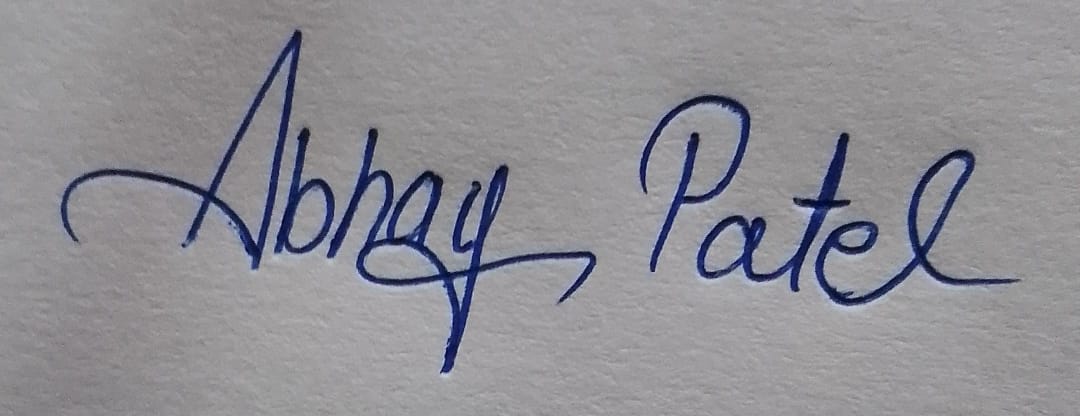 Abhay Patel